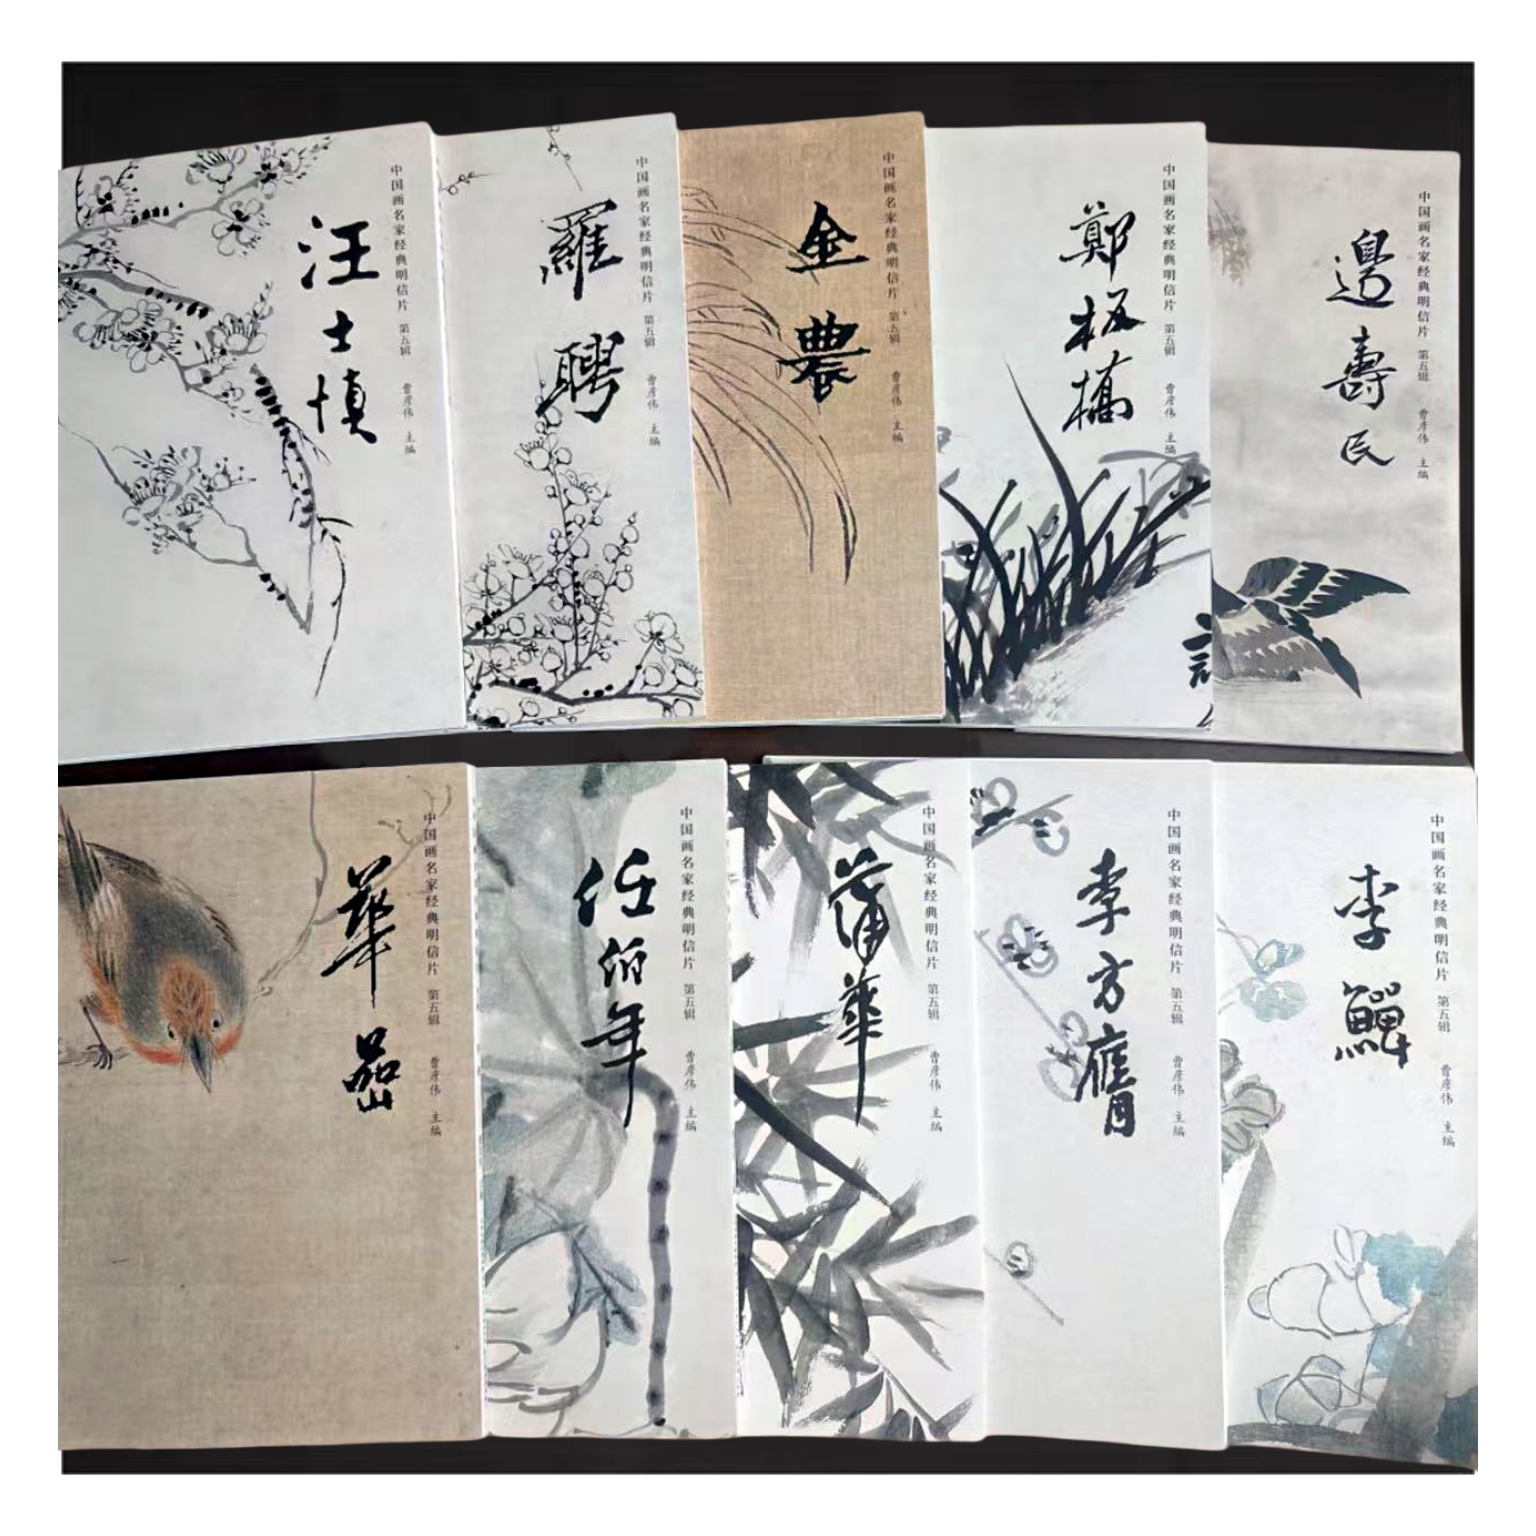 汪士慎
中国画名家经典明信片 第五辑 曹彦伟 主编
羅聘
中国画名家经典明信片 第五辑 曹彦伟 主编
金農
中国画名家经典明信片 第五辑 曹彦伟 主编
鄭板橋
中国画名家经典明信片 第五辑 曹彦伟 主编
邊壽民
中国画名家经典明信片 第五辑 曹彦伟 主编
華喦
中国画名家经典明信片 第五辑 曹彦伟 主编
任伯年
中国画名家经典明信片 第五辑 曹彦伟 主编
蒲華
中国画名家经典明信片 第五辑 曹彦伟 主编
李方膺
中国画名家经典明信片 第五辑 曹彦伟 主编
李鱓
中国画名家经典明信片 第五辑 曹彦伟 主编